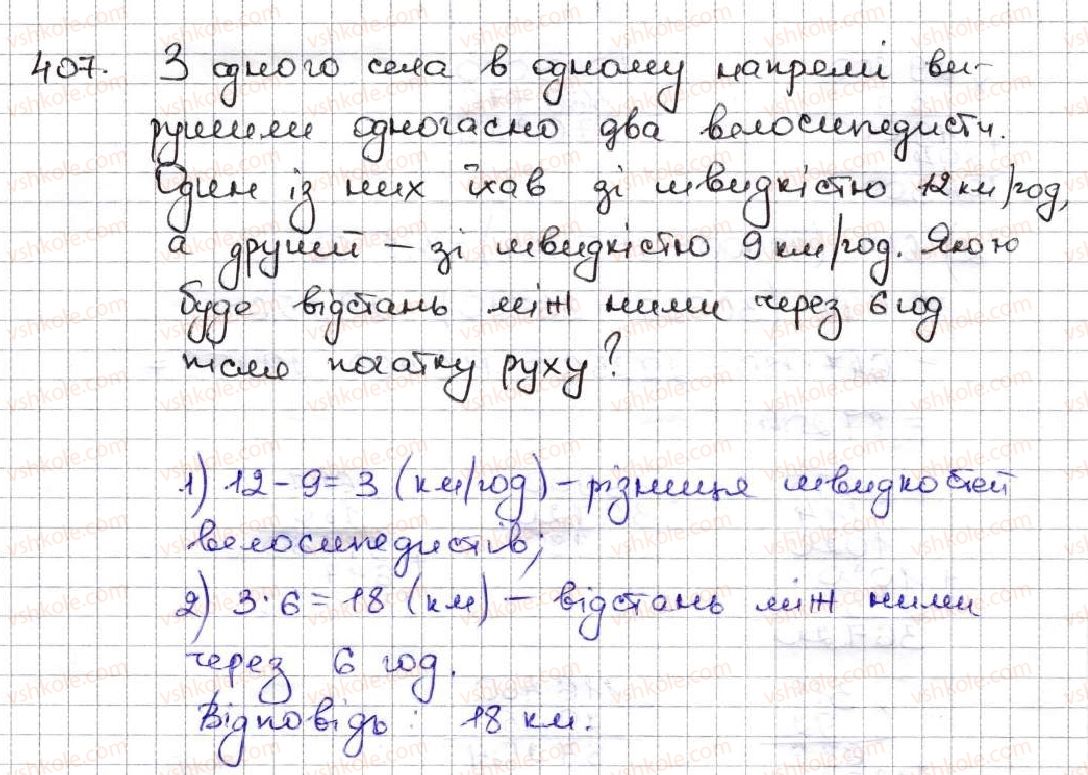 407. З одного села в одному напрямі ви-
рушили одночасно два велосипедисти.
Один із них їхав зі швидкістю 12 км/год,
а другий – зі швидкістю 9 км/год. Якою
буде відстань між ними через 6 год
після початку руху?
1) 12 - 9 = 3 (км/год) – різниця швидкостей
велосипедистів;
2) 3 · 6 = 18 (км) – відстань між ними
через 6 год.
Відповідь: 18 км.